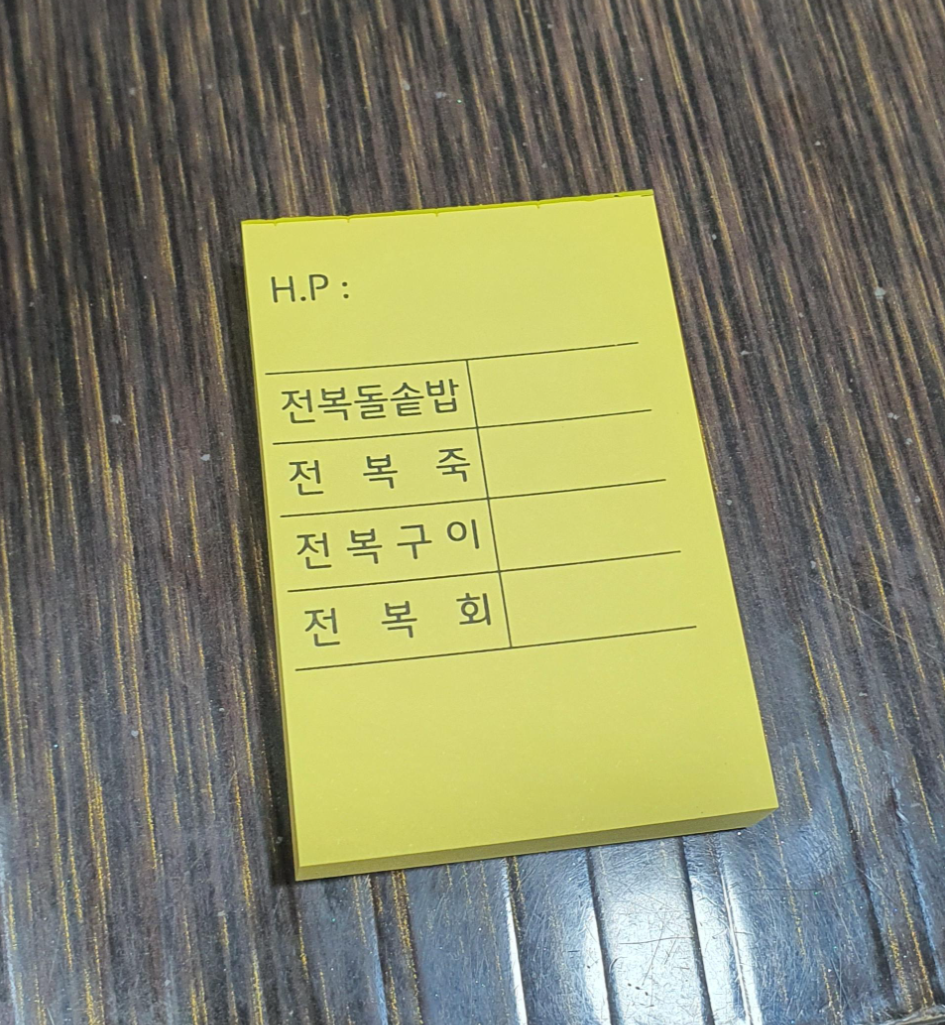 H.P :
전복돌솥밥
전 복 죽
전 복 구 이
전 복 회